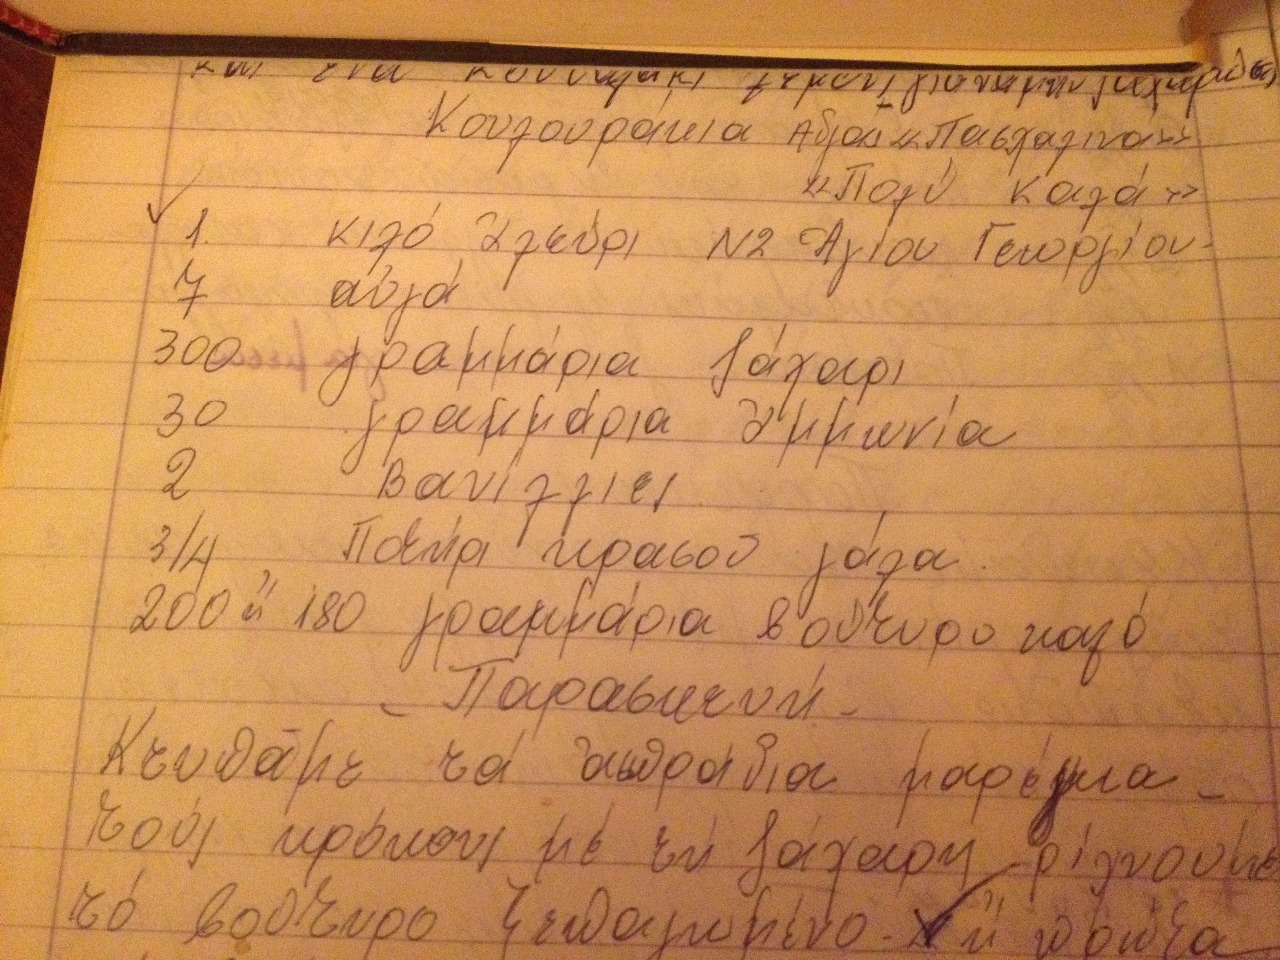 και ένα κουταλάκι
Κουλουράκια Αβγού «Πασχαλινα»
«Πολύ καλά»
1. κιλό Αλεύρι Ν2 Άγίου Γεωργίου-
7 αύγά
300 γραμμάρια ζάχαρι
30 γραμμάρια Άμμωνία
2 Βανίλλιες
3/4 Ποτήρι κρασού γάλα
200 ή 180 γραμμάρια βούτυρο καλό
- Παρασκευή -
Κτυπάμε τά άσπράδια μαρέγκα -
τούς κρόκους μέ τή ζάχαρη ρίχνουμε
τό βούτυρο ξεπαγωμένο - ή πρώτα